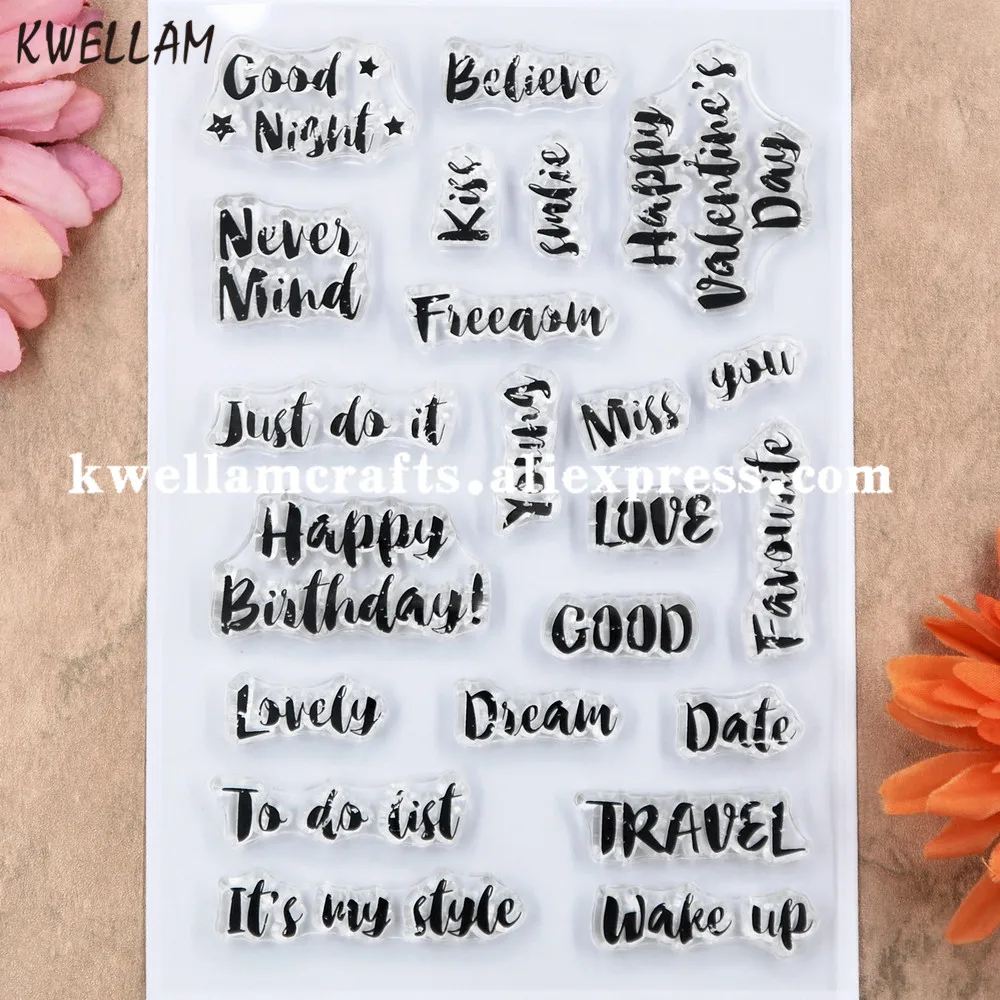 KWELLAM
Good
Night
Believe
Happy
Valentine's
Day
Kiss
smlie
Never
Mind
Freedom
you
Just do it
Young
Miss
kwellamcrafts.aliexpress.com
LOVE
Favourite
Happy
Birthday!
GOOD
Lovely
Dream
Date
To do list
TRAVEL
It's my style
Wake up